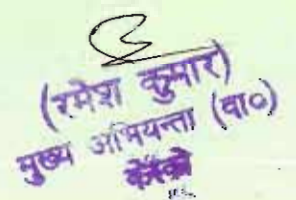 (रमेश कुमार)
मुख्य अभियन्ता (वा०)